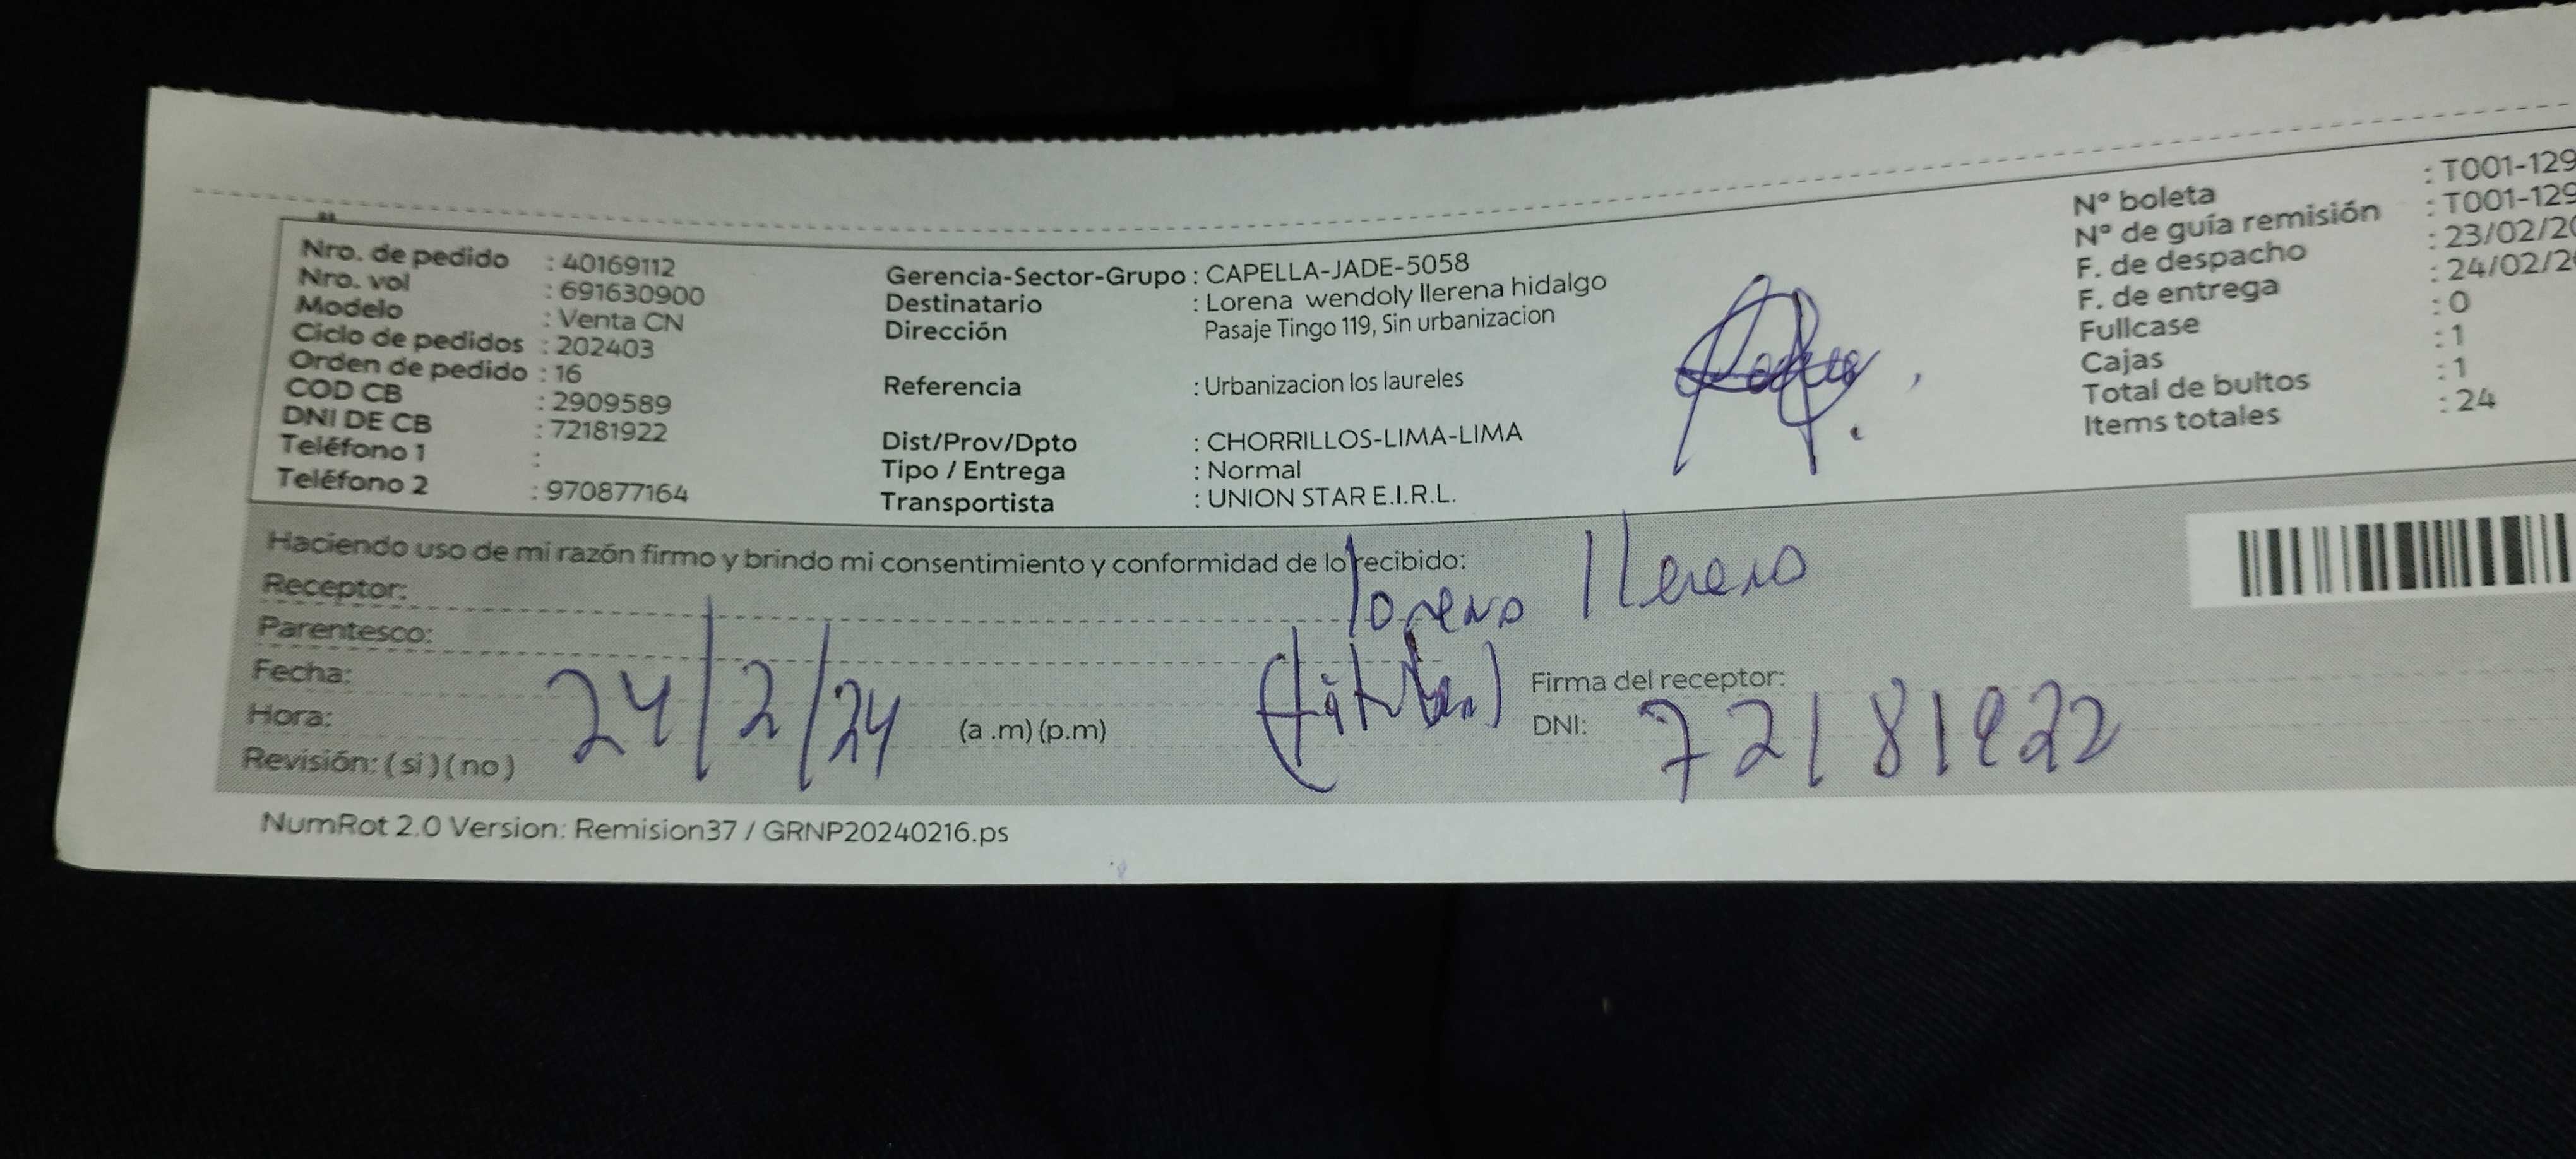 Nro. de pedido : 40169112
Nro. vol : 691630900
Modelo : Venta CN
Ciclo de pedidos : 202403
Orden de pedido : 16
COD CB : 2909589
DNI DE CB : 72181922
Teléfono 1 :
Teléfono 2 : 970877164
Gerencia-Sector-Grupo : CAPELLA-JADE-5058
Destinatario : Lorena wendoly llerena hidalgo
Dirección Pasaje Tingo 119, Sin urbanizacion
Referencia : Urbanizacion los laureles
Dist/Prov/Dpto : CHORRILLOS-LIMA-LIMA
Tipo / Entrega : Normal
Transportista : UNION STAR E.I.R.L.
N° boleta : T001-129
N° de guía remisión : T001-129
F. de despacho : 23/02/20
F. de entrega : 24/02/2
Fullcase : 0
Cajas : 1
Total de bultos : 1
Items totales : 24
Haciendo uso de mi razón firmo y brindo mi consentimiento y conformidad de lo recibido:
Receptor: lorena llerena
Parentesco:
Fecha: 24/2/24
Hora: (a .m) (p.m)
Revisión: ( si ) ( no )
Firma del receptor:
DNI: 72181922
NumRot 2.0 Version: Remision37 / GRNP20240216.ps